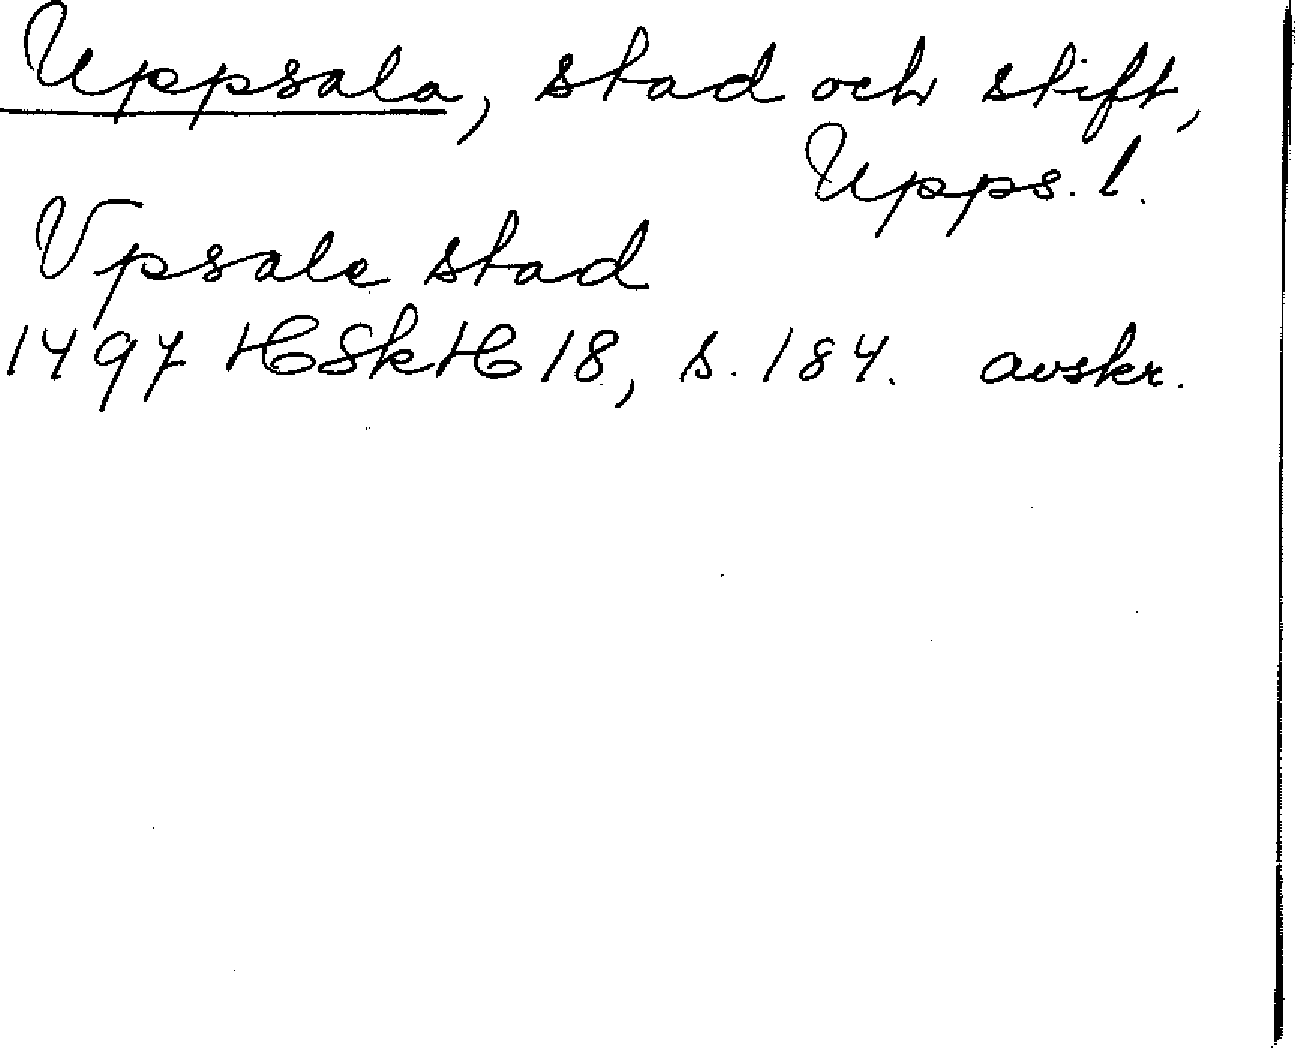 Uppsala, stad och stift,
Upps. l.
Vpsale stad
1497 HSkH 18, s. 184. avskr.